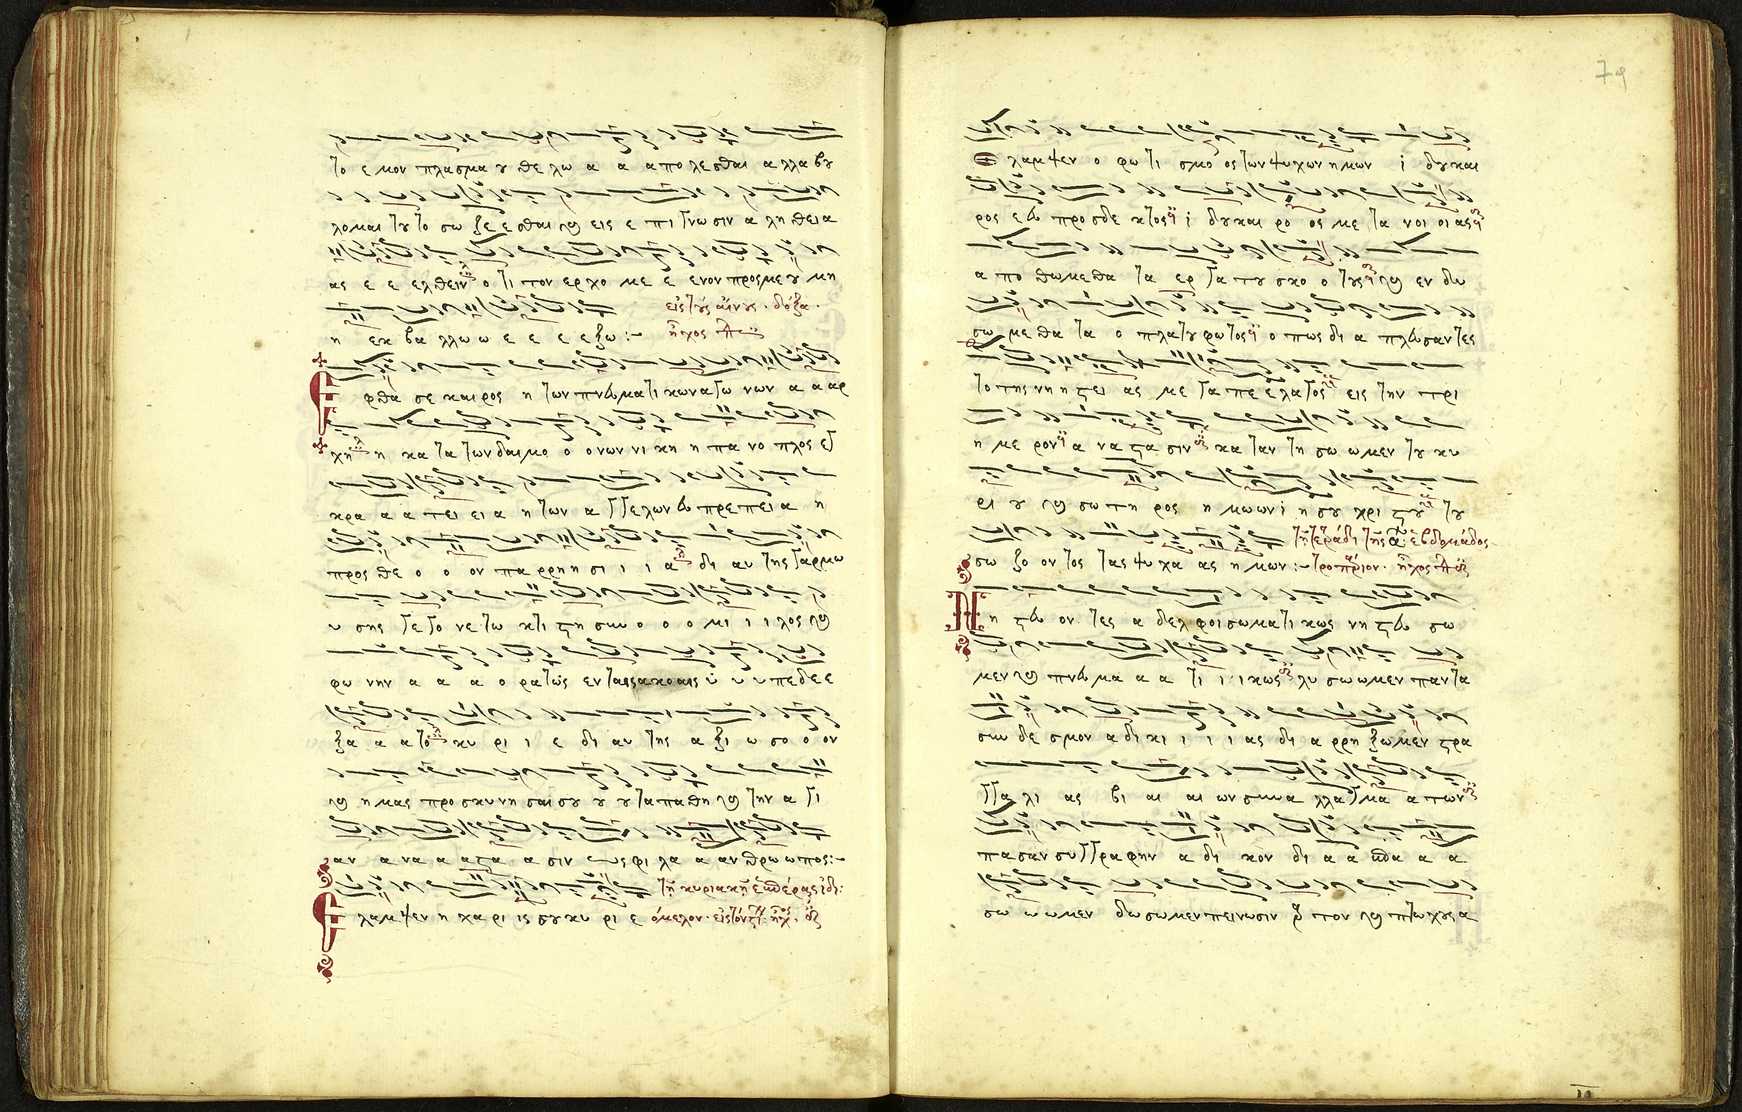 το ε μον πλασμα ου θε λω α α α πο λε σθαι α λλα βου
λομαι του το σω ζε ε σθαι και εις ε πι γνω σιν α λη θεια
ας ε ε ελθειν ο τι τον ερχο με ε ενον προς με ου μη
εις τους αίνους · δόξα ·
η εκ βα λλω ω ε ε ε ε ξω :-
ἦχος
Ε φθα σε και ρος η των πνευματι κων α γω νων α α αρ
χη η κα τα των δαιμο ο ο νων νι κη η πα νο πλος εγ
κρα α α τει ει α η των α γγελων ευ πρεπει α η
προς θε ο ο ον πα ρρη η σι ι ι α δι αυ της γαρ μω
υ σης γε γο νε τω κτι στη συν ο ο ο μι ι ι λος και
φω νην α α α ο ρα τως εν ταις ακοαις υ υ υ πεδε ε
ξα α α το κυ ρι ι ε δι αυ της α ξι ω σο ο ον
και η μας προ σκυ νη σαι σου ου ου τα πα θη και την α γι
αν α να α α στα α σιν ως φι λα α αν θρω ω πος :-
τῇ κυριακῇ ἑσπέρας ἰδι:
Ε λαμψεν η χα ρι ις σου κυ ρι ε
79
ε λαμψεν ο φω τι σμο ος των ψυχων η μων ι δου και
ρος ευ προσ δε κτος ι δου και ρο ος με τα νοι οι ας
α πο θωμε θα τα ερ γα του σκο ο τους και εν δυ
σω με θα τα ο πλα του φω τος ο πως δι α πλευσαν τες
το της νη η στει ας με γα πε ε λα γος εις την τρι
η με ρον α να στα σιν κα ταν τη σω ω μεν του κυ
ρι ου και σω τη ρος η μω ων ι η σου χρι στου του
τῇ τετράδι τῆς α ἑβδομάδος
σω ζο ον τος τας ψυ χα ας η μων :-
ἦχος
Ν η στευ ον τες α δελφοι σωματι κως νη στευ σω
μεν και πνευμα α α τι ι ι ι κως λυ σω ω μεν παν τα
συν δε σμον α δι κι ι ι ι ας δι α ρρη ξωμεν στρα
γγα λι ας βι αι αι ων συν α λλα γμα α των
πα σαν συγγραφην α δι κον δι α α σπα α α
σω ω ω μεν δω σωμεν πεινωσιν αρ τον και πτωχους α